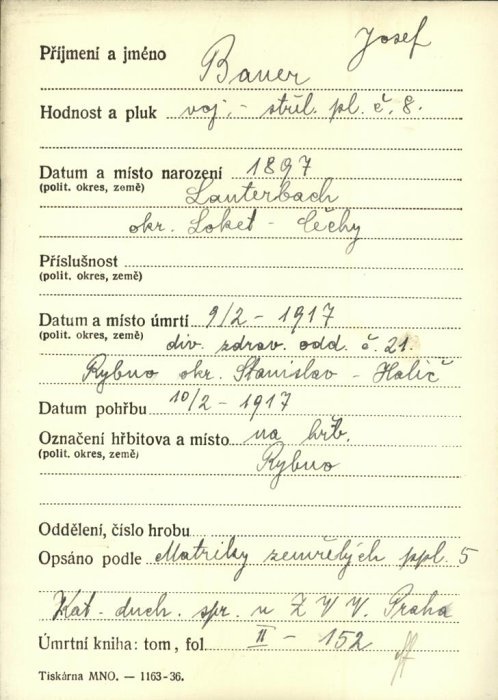 Josef
Příjmení a jméno Bauer
Hodnost a pluk voj. - střel. pl. č. 8.
Datum a místo narození 1897
(polit. okres, země) Lauterbach
okr. Loket - Čechy
Příslušnost
(polit. okres, země)
Datum a místo úmrtí 9/2 - 1917
(polit. okres, země) div. zdrav. odd. č. 21.
Rybno okr. Stanislav - Halič
Datum pohřbu 10/2 - 1917
Označení hřbitova a místo na hřb.
(polit. okres, země) Rybno
Oddělení, číslo hrobu
Opsáno podle Matriky zemřelých ppl. 5
Kat. duch. spr. u Z V V. Praha
Úmrtní kniha: tom, fol. II - 152
Tiskárna MNO. — 1163-36.